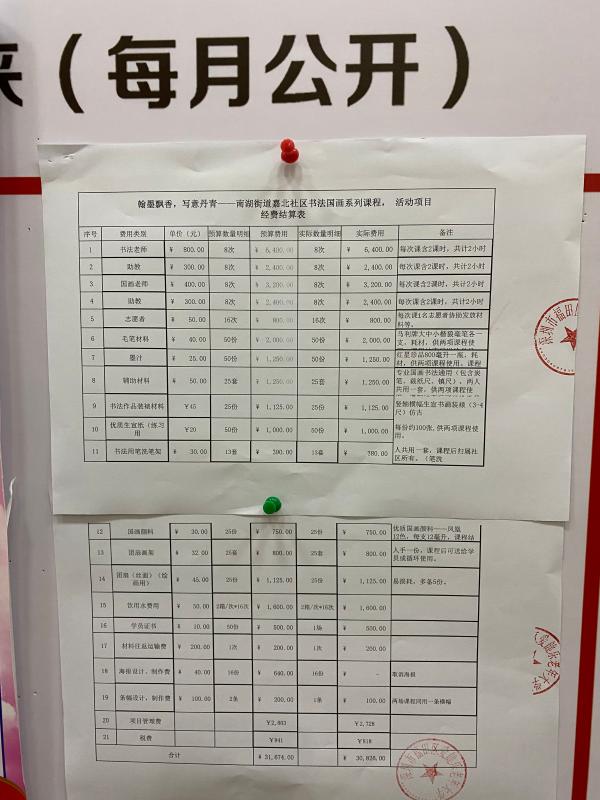 来（每月公开）
翰墨飘香，写意丹青——南湖街道嘉北社区书法国画系列课程， 活动项目
经费结算表
序号 费用类别 单价（元） 预算数量明细 预算费用 实际数量明细 实际费用 备注
1 书法老师 ¥ 800.00 8次 ¥ 6,400.00 8次 ¥ 6,400.00 每次课含2课时，共计2小时
2 助教 ¥ 300.00 8次 ¥ 2,400.00 8次 ¥ 2,400.00 每次课含2课时，共计2小时
3 国画老师 ¥ 400.00 8次 ¥ 3,200.00 8次 ¥ 3,200.00 每次课含2课时，共计2小时
4 助教 ¥ 300.00 8次 ¥ 2,400.00 8次 ¥ 2,400.00 每次课含2课时，共计2小时
5 志愿者 ¥ 50.00 16次 ¥ 800.00 16次 ¥ 800.00 每次课1名志愿者协助发放材
料等。
6 毛笔材料 ¥ 40.00 50份 ¥ 2,000.00 50份 ¥ 2,000.00 马利牌大中小
支，耗材，供两项课程使
7 墨汁 ¥ 25.00 50份 ¥ 1,250.00 50份 ¥ 1,250.00 红星珍品800毫升一瓶，耗
材，供两项课程使用。课程
8 辅助材料 ¥ 50.00 25套 ¥ 1,250.00 25套 ¥ 1,250.00 专业国画书法通用（包含炭
笔、裁纸尺、镇尺），两人
共用一套，供两项课程使
9 书法作品装裱材料 ¥45 25份 ¥ 1,125.00 25份 ¥ 1,125.00 竖幅横幅生宣书画装裱（3-4
尺）仿古
10 优质生宣纸（练习
用 ¥20 50份 ¥ 1,000.00 50份 ¥ 1,000.00 每份约100张，供两项课程使
用。
11 书法用笔洗笔架 ¥ 30.00 13套 ¥ 390.00 13套 人共用一套，课程后归属社
区所有。（笔洗
12 国画颜料 ¥ 30.00 25份 ¥ 750.00 25份 ¥ 750.00 优质国画颜料——凤凰
12色，每支12毫升，课程结
13 团扇画架 ¥ 32.00 25套 ¥ 800.00 25套 ¥ 800.00 人手一份，课程后可送给学
员或循环使用。
14 团扇（丝面）（绘
画用） ¥ 45.00 25份 ¥ 1,125.00 25份 ¥ 1,125.00 易损耗，多备5份。
15 饮用水费用 ¥ 50.00 2箱/次*16次 ¥ 1,600.00 2箱/次*16次 ¥ 1,600.00
16 学员证书 ¥ 10.00 50份 ¥ 500.00 1场 ¥ 500.00
17 材料往返运输费 ¥ 200.00 1次 ¥ 200.00 1次 ¥ 200.00
18 海报设计、制作费 ¥ 40.00 16份 ¥ 640.00 16份 ¥ - 取消海报
19 条幅设计、制作费 ¥ 100.00 2条 ¥ 200.00 1条 ¥ 100.00 两场课程同用一条横幅
20 项目管理费 ¥2,803 ¥2,728
21 税费 ¥841 ¥818
合计 ¥ 31,674.00 ¥ 30,826.00
深圳市福田区